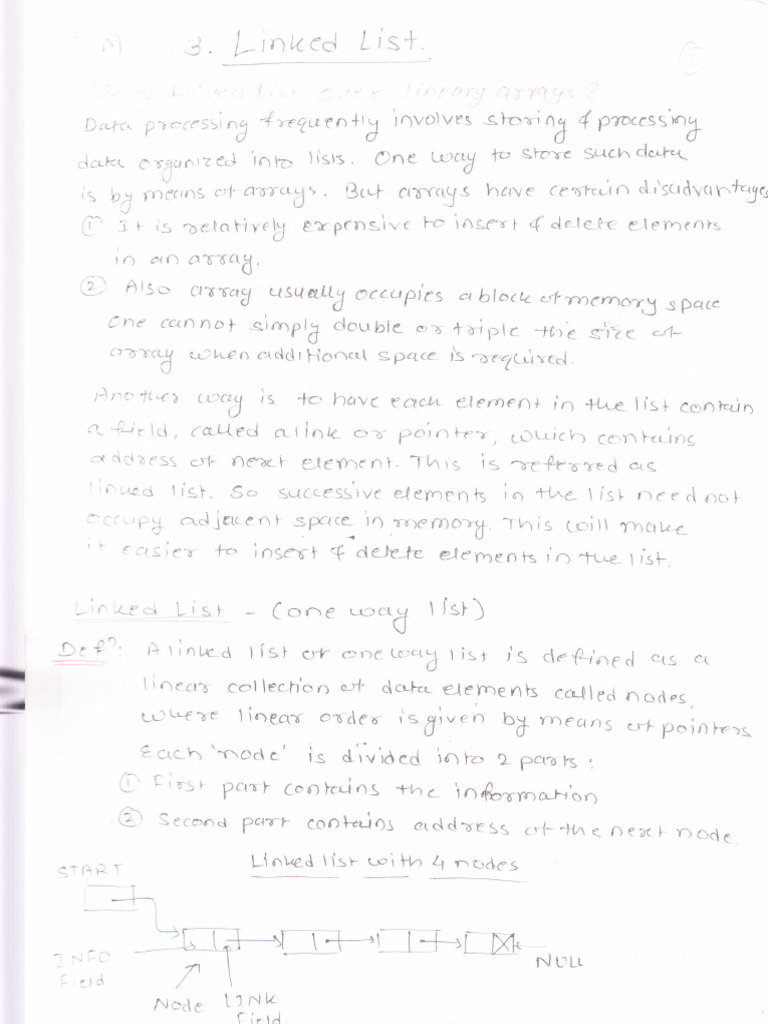 3. Linked List.
Why Linked List over lineary arrays?
Data processing frequently involves storing & processing
data organized into lists. One way to store such data
is by means of arrays. But arrays have certain disadvantages
① It is relatively expensive to insert & delete elements
in an array.
② Also array usually occupies a block of memory space
one cannot simply double or triple the size of
array when additional space is required.
Another way is to have each element in the list contain
a field, called a link or pointer, which contains
address of next element. This is referred as
linked list. So successive elements in the list need not
occupy adjacent space in memory. This will make
it easier to insert & delete elements in the list.
Linked List - (one way list)
Defn: A linked list or one way list is defined as a
linear collection of data elements called nodes,
where linear order is given by means of pointers
Each 'node' is divided into 2 parts:
① First part contains the information
② Second part contains address of the next node.
Linked list with 4 nodes
START
INFO
Field
Node
LINK
Field.
NULL